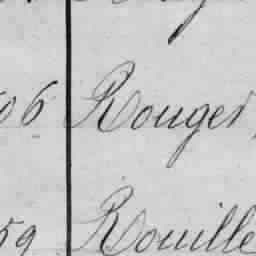 06 Rouget,
59 Rouille